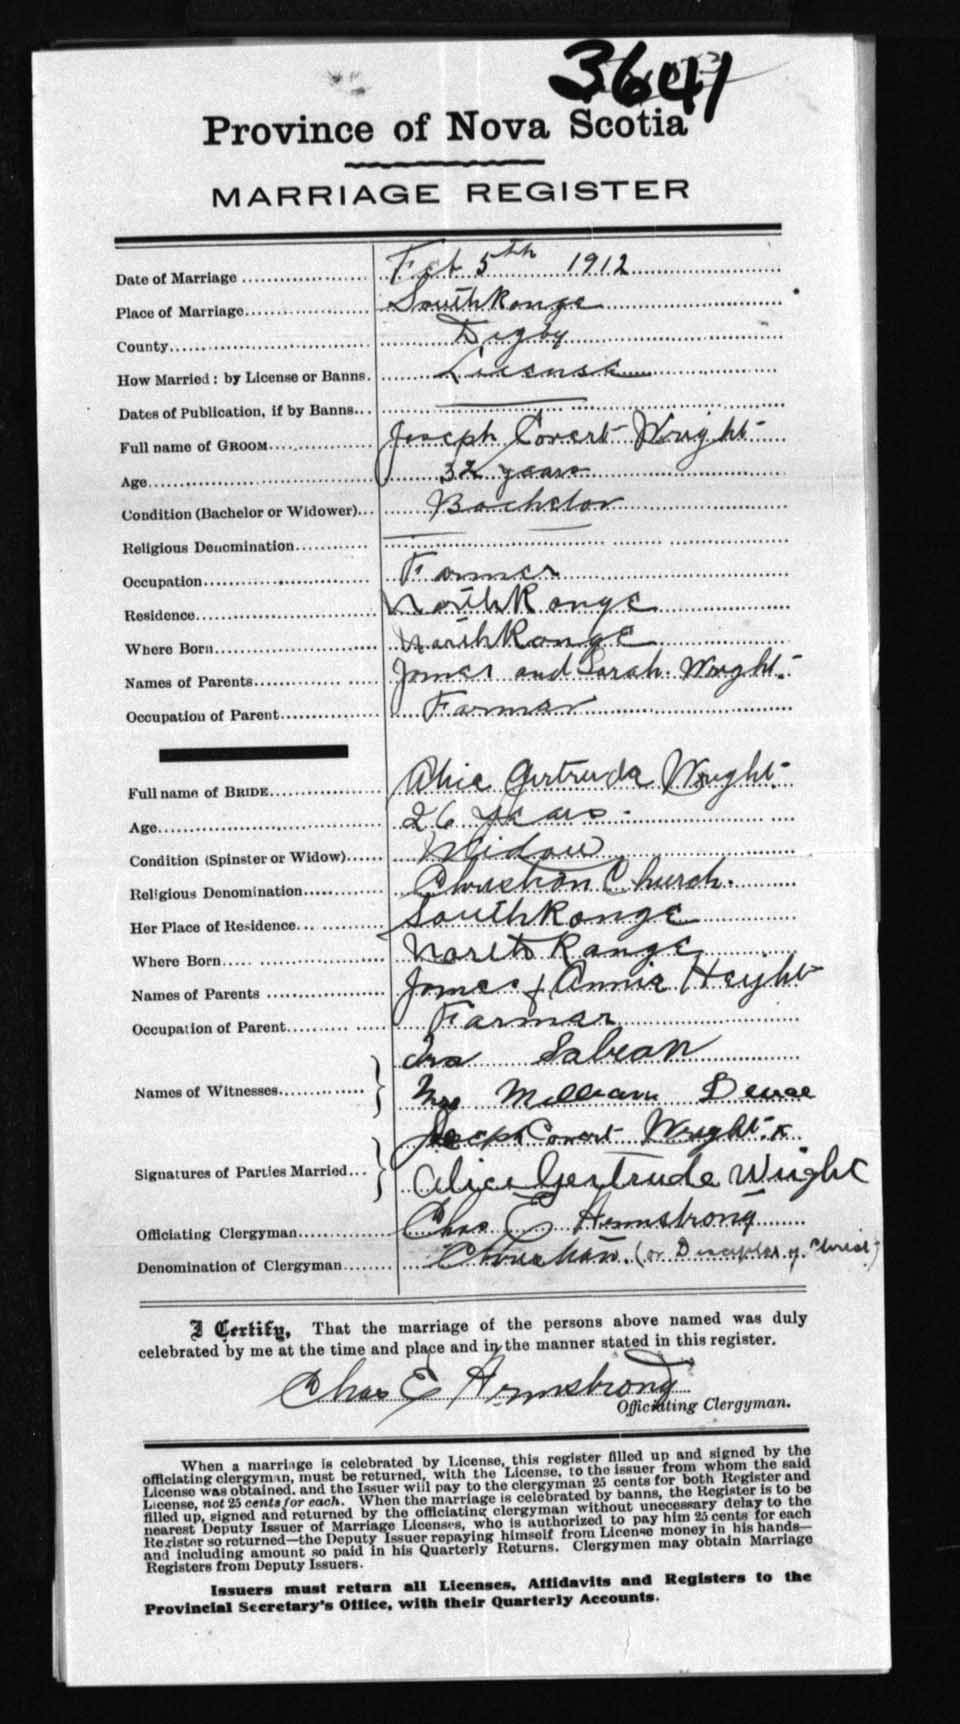 3641
Province of Nova Scotia
MARRIAGE REGISTER
Date of Marriage Feb 5th 1912
Place of Marriage South Range
County Digby
How Married: by License or Banns. License
Dates of Publication, if by Banns
Full name of GROOM Joseph Covert Wright
Age 32 years
Condition (Bachelor or Widower) Bachelor
Religious Denomination
Occupation Farmer
Residence North Range
Where Born North Range
Names of Parents James and Sarah Wright
Occupation of Parent Farmer
Full name of BRIDE Alice Gertrude Wright
Age 26 years
Condition (Spinster or Widow) Widow
Religious Denomination Christian Church.
Her Place of Residence South Range
Where Born North Range
Names of Parents James & Annie Height
Occupation of Parent Farmer
Ira Sabean
Names of Witnesses
Mrs William
Joseph Covert Wright x
Signatures of Parties Married
Alice Gertrude Wright
Officiating Clergyman Chas E Armstrong
Denomination of Clergyman Christian. (or Disciples of Christ)
I Certify, That the marriage of the persons above named was duly
celebrated by me at the time and place and in the manner stated in this register.
Chas E Armstrong
Officiating Clergyman.
When a marriage is celebrated by License, this register filled up and signed by the
officiating clergyman, must be returned, with the License, to the issuer from whom the said
License was obtained, and the Issuer will pay to the clergyman 25 cents for both Register and
License, not 25 cents for each. When the marriage is celebrated by banns, the Register is to be
filled up, signed and returned by the officiating clergyman without unecessary delay to the
nearest Deputy Issuer of Marriage Licenses, who is authorized to pay him 25 cents for each
Register so returned—the Deputy Issuer repaying himself from License money in his hands—
and including amount so paid in his Quarterly Returns. Clergymen may obtain Marriage
Registers from Deputy Issuers.
Issuers must return all Licenses, Affidavits and Registers to the
Provincial Secretary's Office, with their Quarterly Accounts.